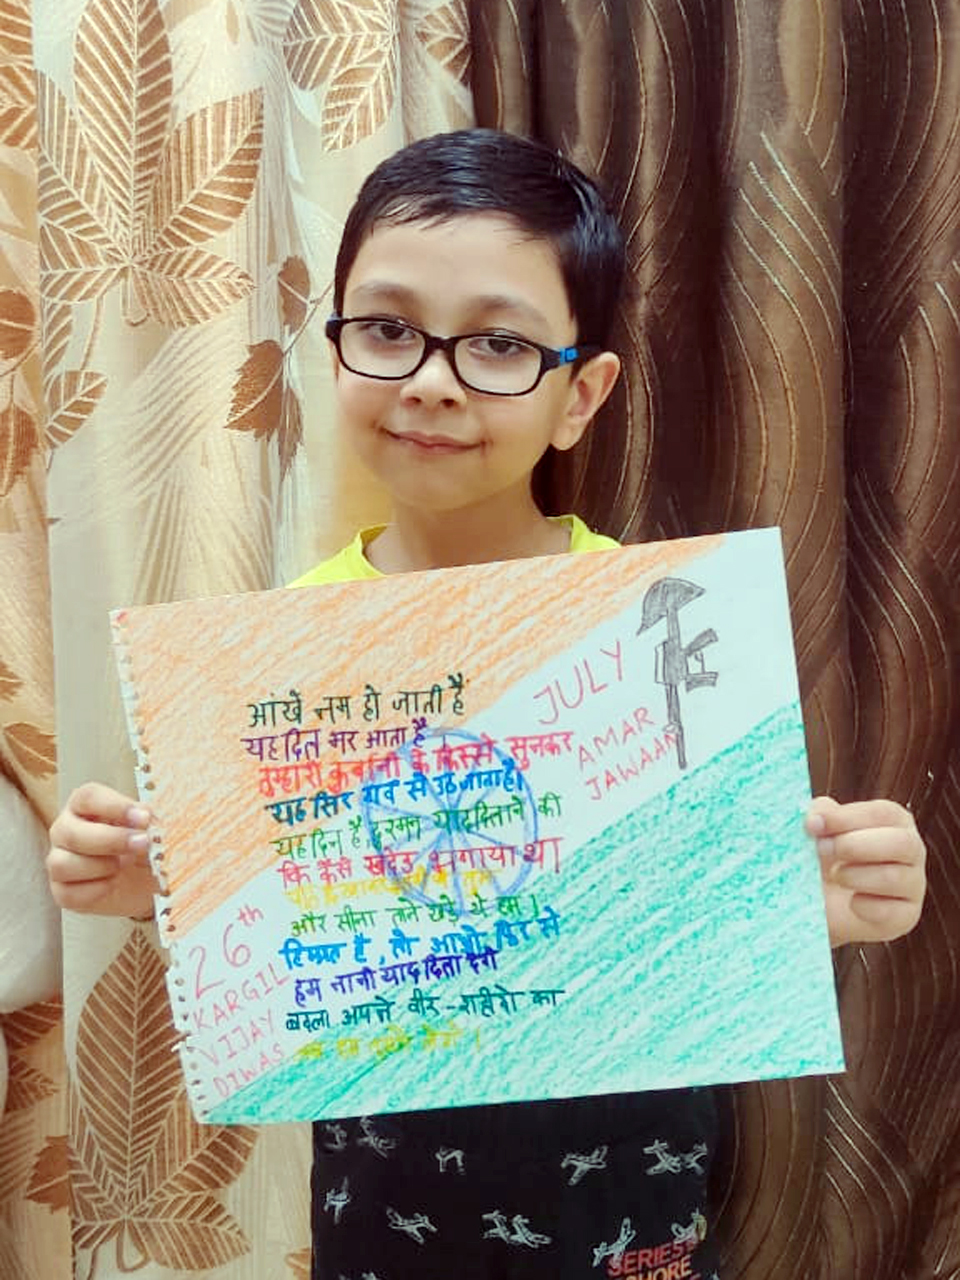 आंखें नम हो जाती है
यह दिल भर आता है
तुम्हारी कुर्बानी के किस्से सुनकर
यह सिर गर्व से उठ जाता है।
यह दिन है, दुश्मन याद दिलाने की
कि कैसे खदेड़ भगाया था
और सीना ताने खड़े थे हम।
हिम्मत है, तो आओ फिर से
हम नानी याद दिला देंगे
बदला अपने वीर-शहीदो का
26th
JULY
KARGIL
VIJAY
DIWAS
AMAR
JAWAAN
SERIES
SHORE